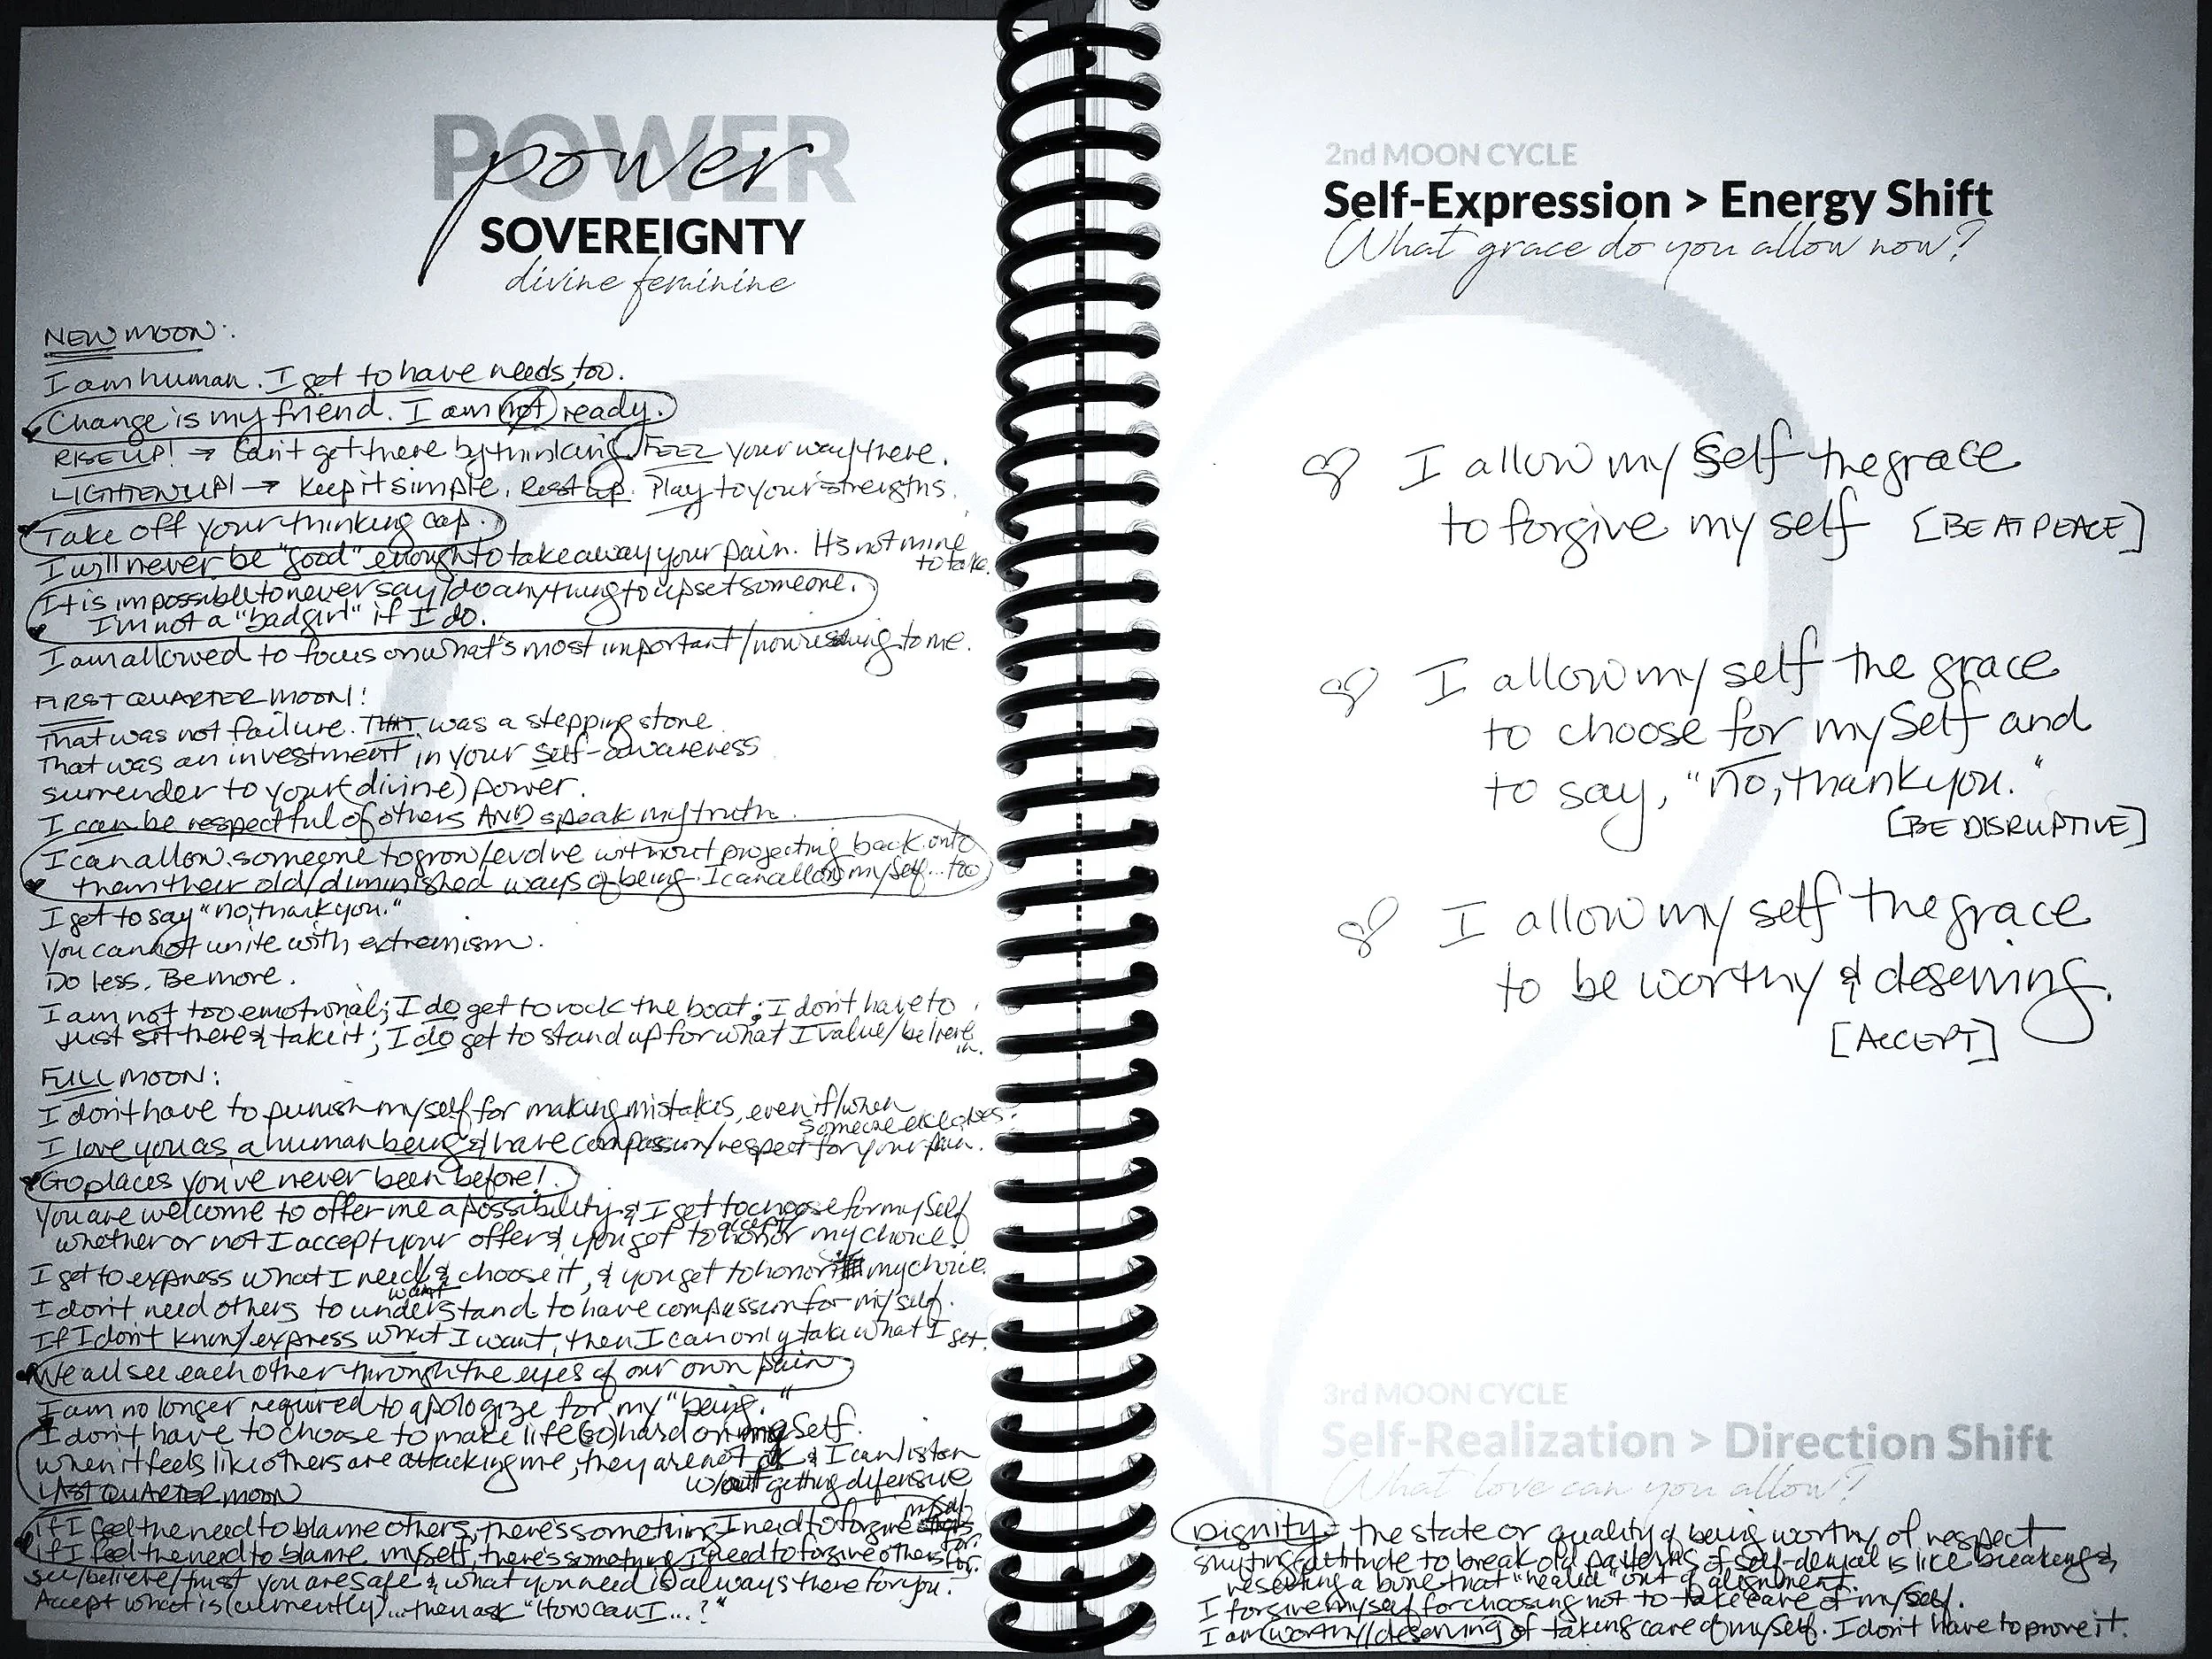 POWER
power
SOVEREIGNTY
divine feminine
NEW MOON:
I am human. I get to have needs, too.
Change is my friend. I am not ready.
RISE UP! → Can't get there by thinking. FEEL your way there.
LIGHTEN UP! → Keep it simple. Rest up. Play to your strengths.
Take off your thinking cap.
I will never be "good" enough to take away your pain. It's not mine
to take.
It is impossible to never say/do anything to upset someone.
I'm not a "bad girl" if I do.
I am allowed to focus on what's most important/nourishing to me.
FIRST QUARTER MOON!
That was not failure. THAT was a stepping stone
That was an investment in your self-awareness
surrender to your (divine) power.
I can be respectful of others AND speak my truth.
I can allow someone to grow/evolve without projecting back onto
them their old/diminished ways of being. I can allow my self... too
I get to say "no, thank you."
You cannot unite with extremism.
Do less. Be more.
I am not too emotional; I do get to rock the boat; I don't have to
just sit there & take it; I do get to stand up for what I value/believe
in.
FULL MOON:
I don't have to punish myself for making mistakes, even if/when
someone else does.
I love you as a human being & have compassion/respect for your pain.
Go places you've never been before!
You are welcome to offer me a possibility & I get to choose for my Self
whether or not I accept your offer & you get to honor my choice.
accept
I get to express what I need & choose it, & you get to honor my choice.
want
I don't need others to understand to have compassion for my self.
If I don't know/express what I want, then I can only take what I get.
We all see each other through the eyes of our own pain.
I am no longer required to apologize for my "being."
I don't have to choose to make life (so) hard on my Self.
when it feels like others are attacking me, they are not ok & I can listen
w/out getting defensive
LAST QUARTER MOON
If I feel the need to blame others, there's something I need to forgive myself
for.
If I feel the need to blame myself, there's something I need to forgive others for.
see/believe/trust you are safe & what you need is always there for you.
Accept what is (currently)... then ask "How can I...?"
2nd MOON CYCLE
Self-Expression > Energy Shift
What grace do you allow now?
I allow my Self the grace
to forgive my self [BE AT PEACE]
I allow my self the grace
to choose for my Self and
to say, "no, thank you."
[BE DISRUPTIVE]
I allow my self the grace
to be worthy & deserving.
[ACCEPT]
3rd MOON CYCLE
Self-Realization > Direction Shift
What love can you allow?
Dignity = the state or quality of being worthy of respect
shifting attitude to break old patterns of self-denial is like breaking &
resetting a bone that "healed" out of alignment.
I forgive myself for choosing not to take care of my Self.
I am worthy/deserving of taking care of my Self. I don't have to prove it.